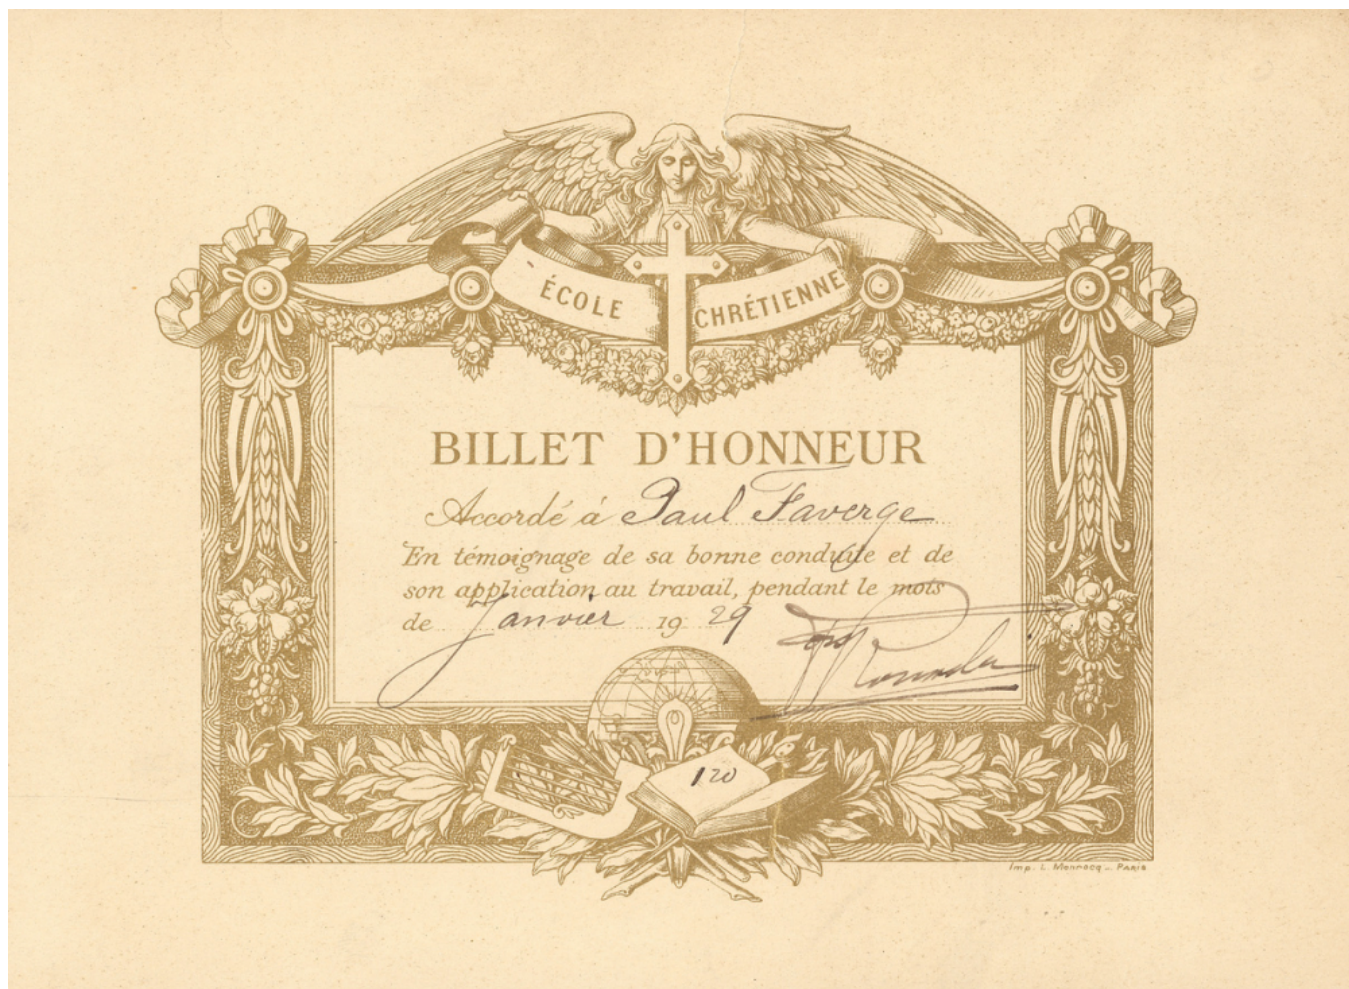 ÉCOLE CHRÉTIENNE
BILLET D'HONNEUR
Accordé à Paul Faverge
En témoignage de sa bonne conduite et de
son application au travail, pendant le mois
de Janvier 19 29
120
Imp. L. Monrocq _ PARIS